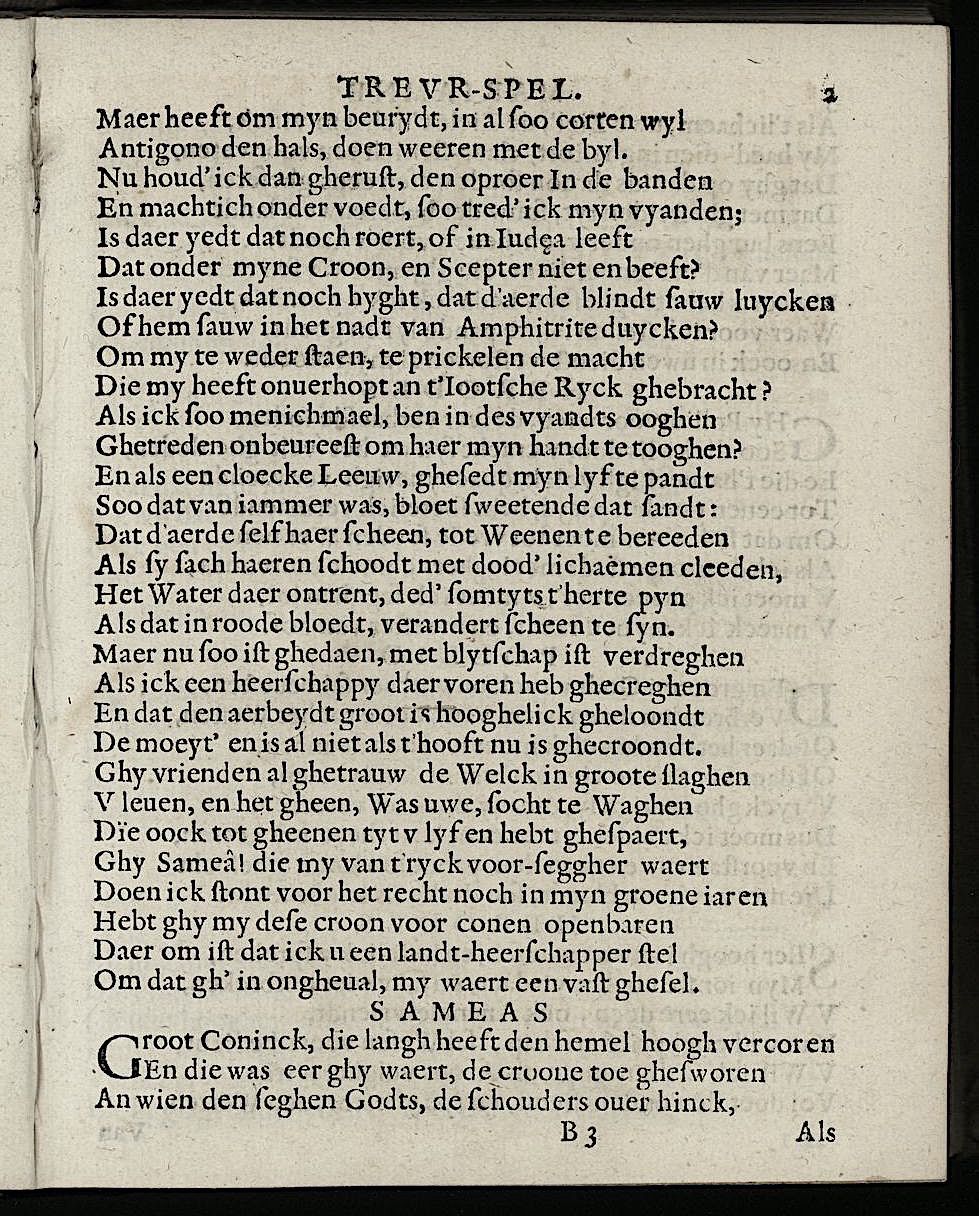 TREVR-SPEL. 2
Maer heeft om myn beurydt, in al ſoo corten wyl
Antigono den hals, doen weeren met de byl.
Nu houd' ick dan gheruſt, den oproer In de banden
En machtich onder voedt, ſoo tred' ick myn vyanden;
Is daer yedt dat noch roert, of in Iudęa leeft
Dat onder myne Croon, en Scepter niet en beeft?
Is daer yedt dat noch hyght, dat d'aerde blindt ſauw luycken
Of hem ſauw in het nadt van Amphitrite duycken?
Om my te weder ſtaen, te prickelen de macht
Die my heeft onuerhopt an t'Iootſche Ryck ghebracht?
Als ick ſoo menichmael, ben in des vyandts ooghen
Ghetreden onbeureeſt om haer myn handt te tooghen?
En als een cloecke Leeuw, gheſedt myn lyf te pandt
Soo dat van iammer was, bloet ſweetende dat ſandt:
Dat d'aerde ſelf haer ſcheen, tot Weenen te bereeden
Als ſy ſach haeren ſchoodt met dood' lichaemen cleeden,
Het Water daer ontrent, ded' ſomtyts t'herte pyn
Als dat in roode bloedt, verandert ſcheen te ſyn.
Maer nu ſoo iſt ghedaen, met blytſchap iſt verdreghen
Als ick een heerſchappy daer voren heb ghecreghen
En dat den aerbeydt groot is hooghelick gheloondt
De moeyt' en is al niet als t'hooft nu is ghecroondt.
Ghy vrienden al ghetrauw de Welck in groote ſlaghen
V leuen, en het gheen, Was uwe, ſocht te Waghen
Die oock tot gheenen tyt v lyf en hebt gheſpaert,
Ghy Sameâ! die my van t'ryck voor-ſeggher waert
Doen ick ſtont voor het recht noch in myn groene iaren
Hebt ghy my deſe croon voor conen openbaren
Daer om iſt dat ick u een landt-heerſchapper ſtel
Om dat gh' in ongheual, my waert een vaſt gheſel.
SAMEAS
Groot Coninck, die langh heeft den hemel hoogh vercoren
En die was eer ghy waert, de croone toe gheſworen
An wien den ſeghen Godts, de ſchouders ouer hinck,
B 3 Als